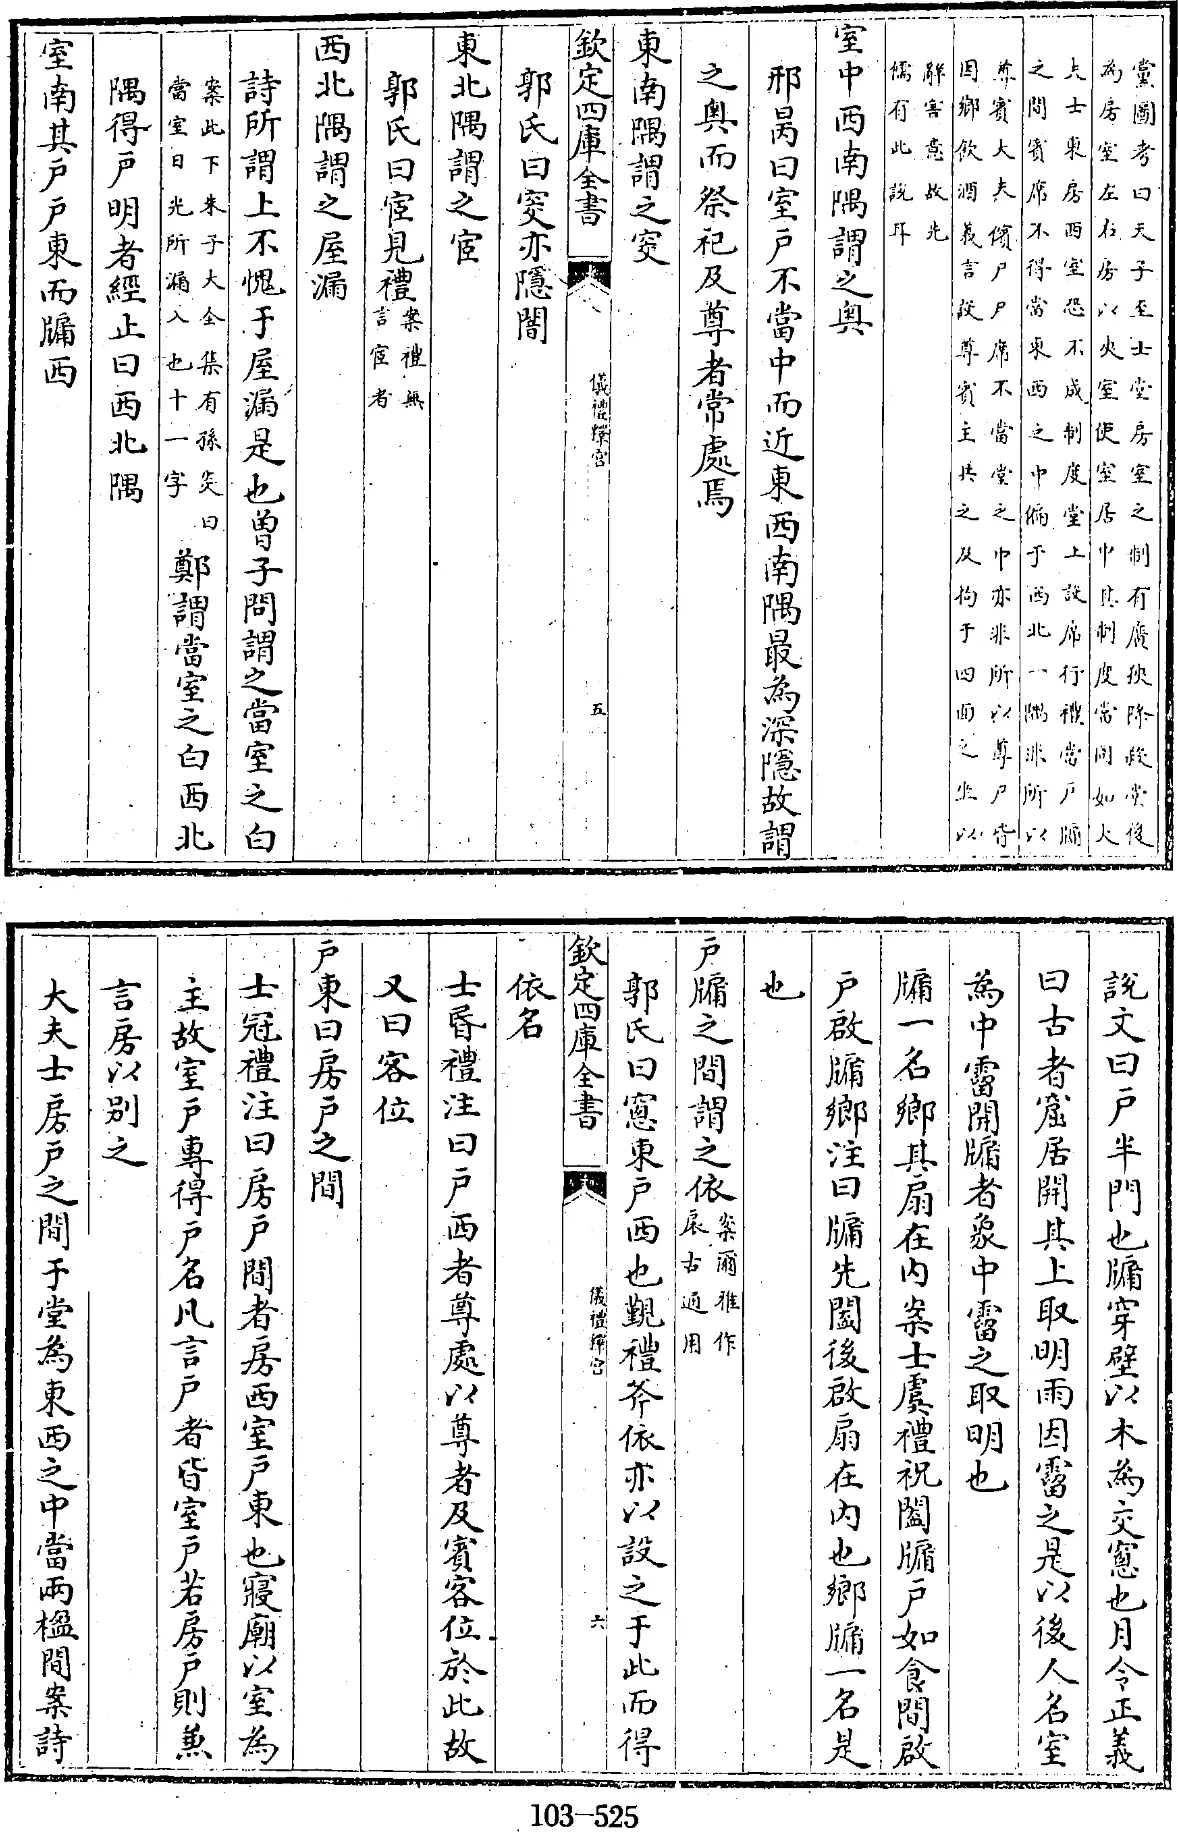 黨圖考曰天子至士堂房室之制有廣狹降殺堂後
為房室左右房以夾室使室居中其制度當同如大
夫士東房西室恐不成制度堂上設席行禮當戶牖
之間賓席不得當東西之中偏于西北一隅非所以
尊賓大夫儐尸尸席不當堂之中亦非所以尊尸皆
因鄉飲酒義言設尊賓主共之及拘于四面之坐以
辭害意故先
儒有此說耳
室中西南隅謂之奥
邢昺曰室戶不當中而近東西南隅最為深隱故謂
之奥而祭祀及尊者常處焉
東南隅謂之窔
欽定四庫全書
儀禮釋宫
五
郭氏曰窔亦隱闇
東北隅謂之宧
郭氏曰宧見禮案禮無
言宧者
西北隅謂之屋漏
詩所謂上不愧于屋漏是也曾子問謂之當室之白
案此下朱子大全集有孫炎曰
當室日光所漏入也十一字
鄭謂當室之白西北
隅得戶明者經止曰西北隅
室南其戶戶東而牖西
說文曰戶半門也牖穿壁以木為交窻也月令正義
曰古者窟居開其上取明雨因霤之是以後人名室
為中霤開牖者象中霤之取明也
牖一名鄉其扇在内案士虞禮祝闔牖戶如食間啟
戶啟牖鄉注曰牖先闔後啟扇在内也鄉牖一名是
也
戶牖之間謂之依案爾雅作
扆古通用
郭氏曰窻東戶西也覲禮斧依亦以設之于此而得
欽定四庫全書
儀禮釋宫
六
依名
士昏禮注曰戶西者尊處以尊者及賓客位於此故
又曰客位
戶東曰房戶之間
士冠禮注曰房戶間者房西室戶東也寢廟以室為
主故室戶專得戶名凡言戶者皆室戶若房戶則兼
言房以别之
大夫士房戶之間于堂為東西之中當兩楹間案詩
103-525